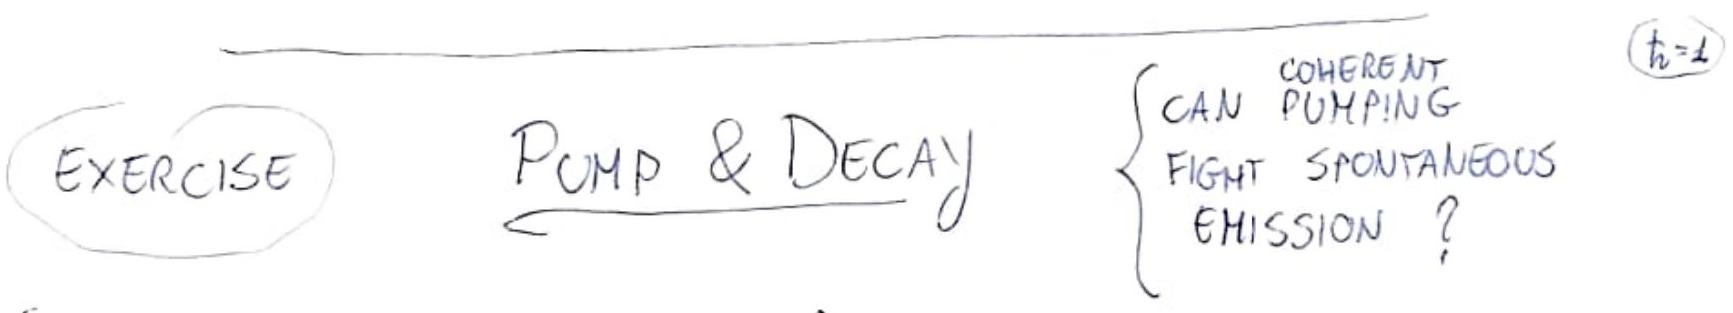 ħ=1
EXERCISE
PUMP & DECAY
CAN COHERENT PUMPING
FIGHT SPONTANEOUS
EMISSION ?